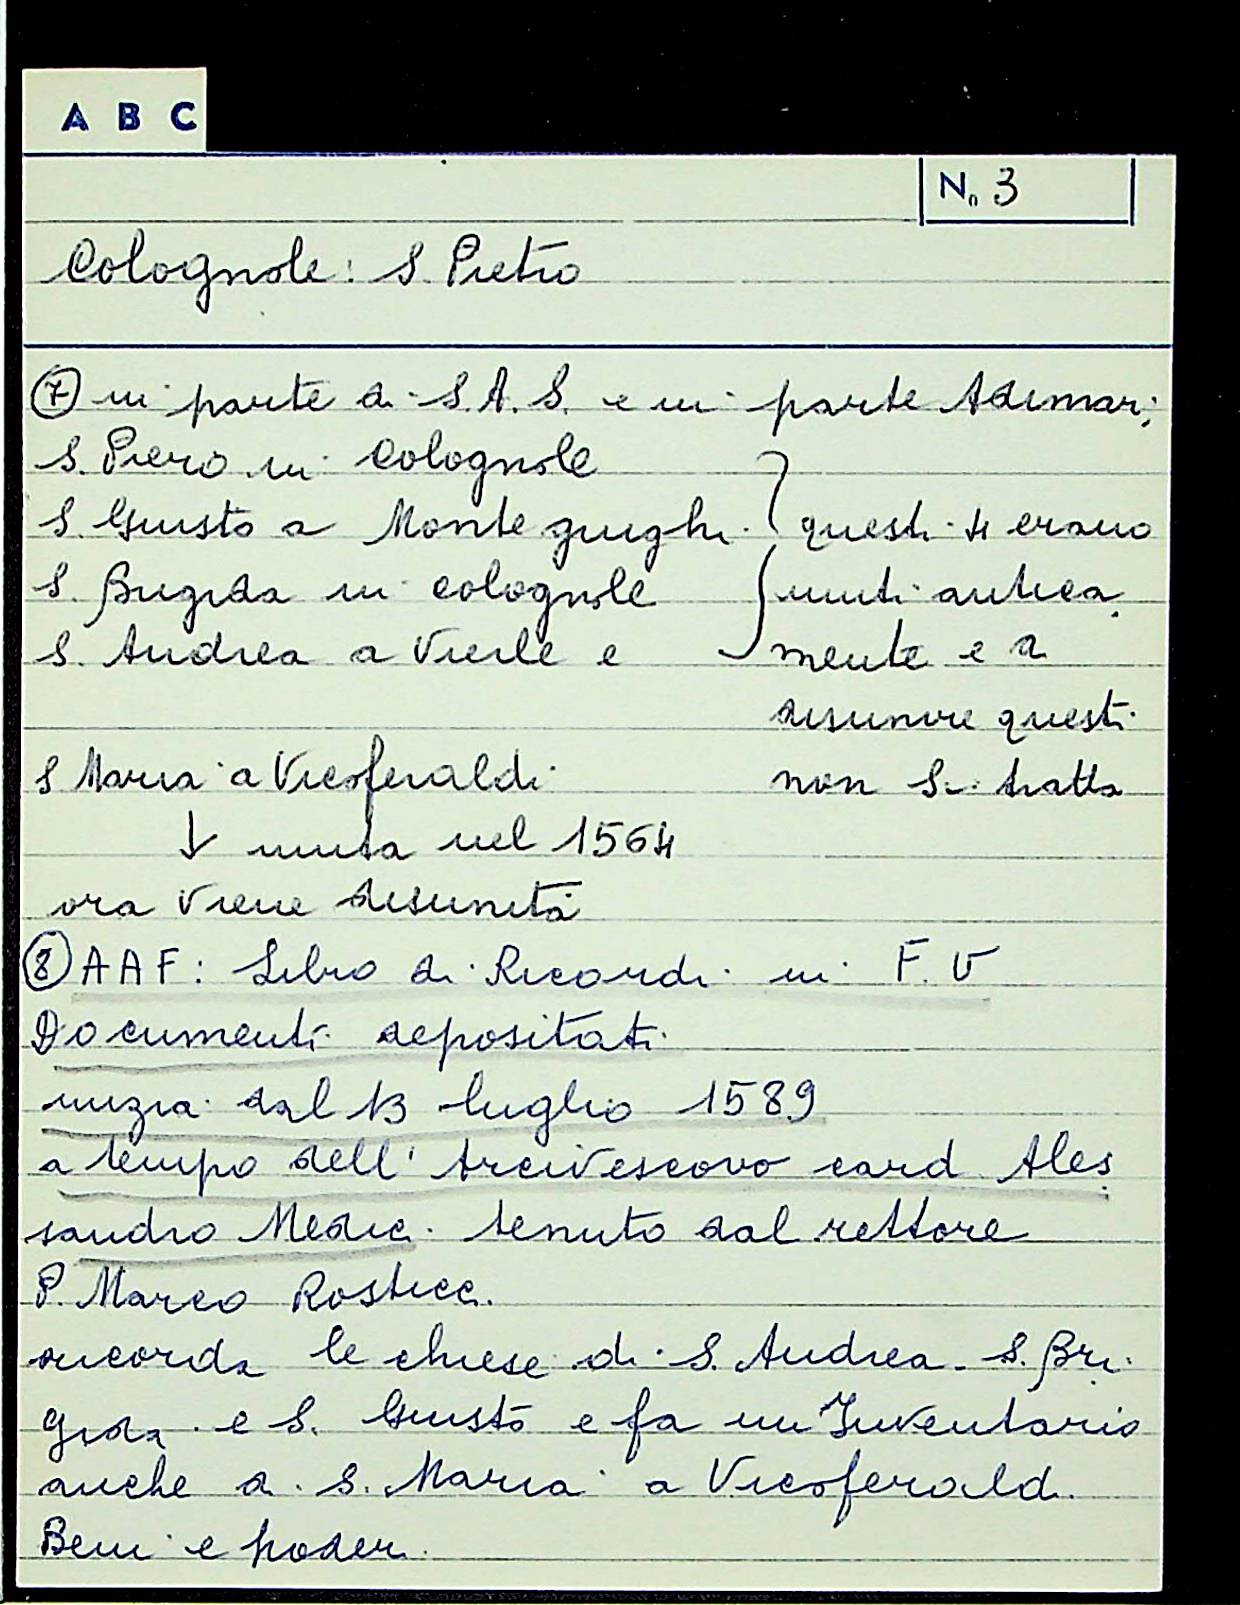 A B C
No 3
Colognole: S. Pietro
⑦ in parte di S.A.S. e in parte Adimari
S. Piero in Colognole
S. Giusto a Monte giughi } questi 4 erano
S. Brigida in Colognole uniti antica
S. Andrea a Vierle e mente e a
disunire questi
S Maria a Vicoferaldi non si tratta
↓ unita nel 1564
ora viene disunita
⑧ AAF: Libro di Ricordi in F. V
Documenti depositati
inizia dal 13 luglio 1589
a tempo dell'Arcivescovo card Ales
sandro Medici tenuto dal rettore
P. Marco Rosticci.
ricorda le chiese di S. Andrea S. Bri
gida e S. Giusto e fa un Inventario
anche di S. Maria a Vicoferaldi.
Beni e poderi